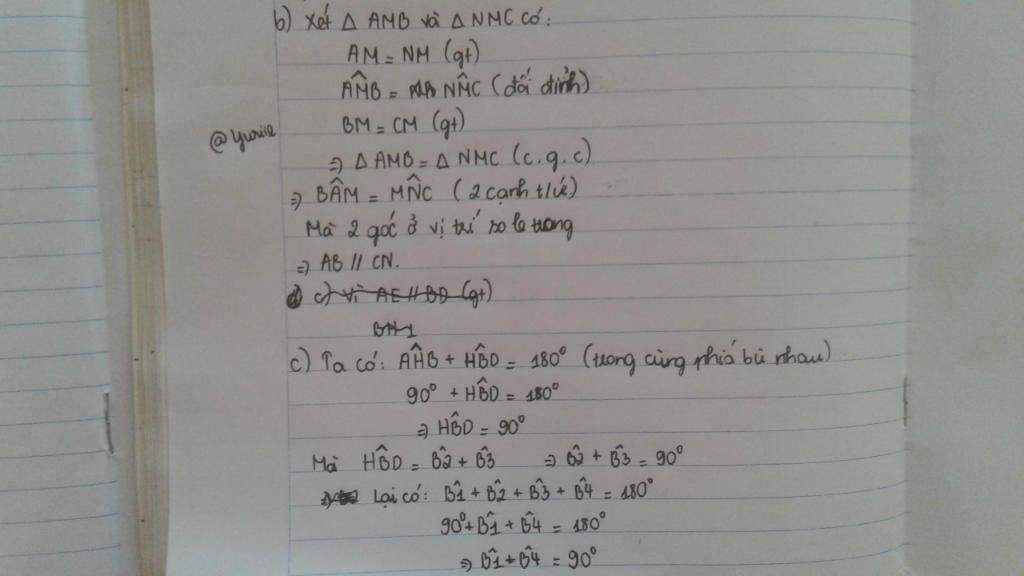 b) Xét Δ AMB và Δ NMC có:
AM = NM (gt)
AM̂B = NM̂C (đối đỉnh)
BM = CM (gt)
@yuviie
⇒ Δ AMB = Δ NMC (c.g.c)
⇒ BÂM = MN̂C (2 cạnh t/ứ)
Mà 2 góc ở vị trí so le trong
⇒ AB // CN.
c) Vì AE // BD (gt)
BH⊥
c) Ta có: AĤB + HB̂D = 180° (trong cùng phía bù nhau)
90° + HB̂D = 180°
⇒ HB̂D = 90°
Mà HB̂D = B̂2 + B̂3 ⇒ B̂2 + B̂3 = 90°
Lại có: B̂1 + B̂2 + B̂3 + B̂4 = 180°
90° + B̂1 + B̂4 = 180°
⇒ B̂1 + B̂4 = 90°